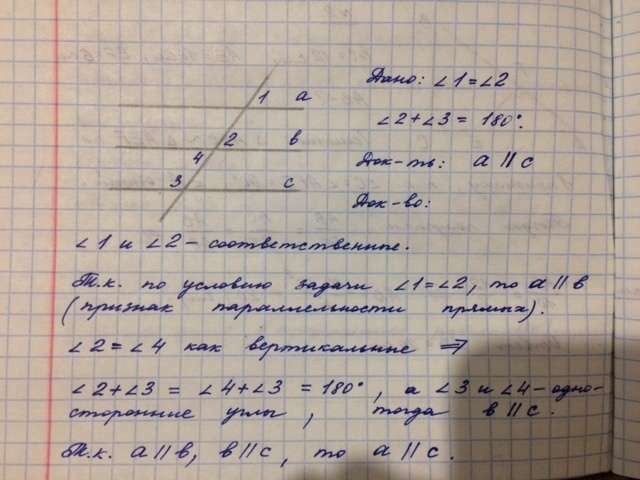 Дано: ∠1=∠2
∠2+∠3=180°.
Док-ть: a || c
Док-во:
1 a
2 в
4
3 c
∠1 и ∠2 - соответственные.
Т.к. по условию задачи ∠1=∠2, то a || в
(признак параллельности прямых).
∠2=∠4 как вертикальные ⇒
∠2+∠3=∠4+∠3=180°, а ∠3 и ∠4 - одно-
сторонние углы, тогда в || c.
Т.к. a || в, в || c, то a || c.